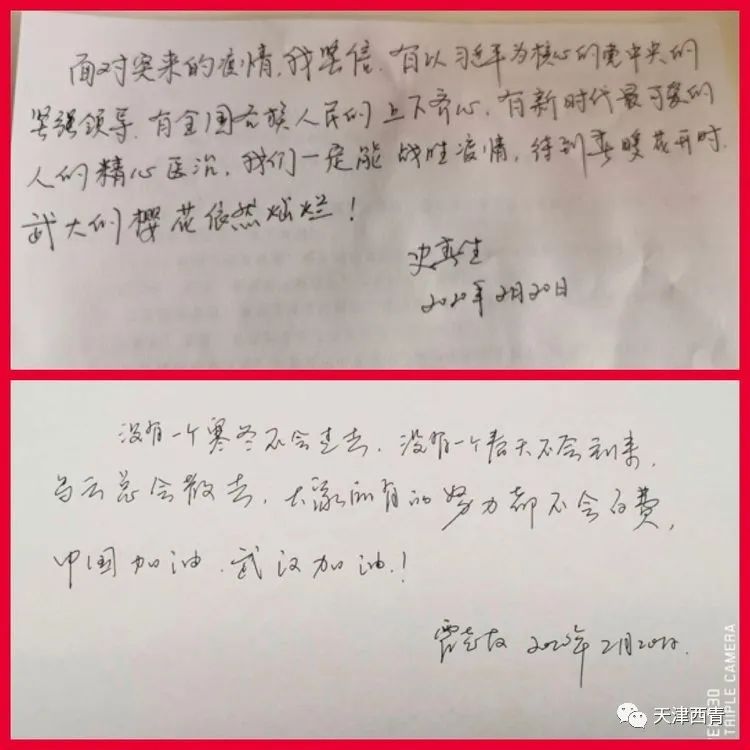 面对突来的疫情,我坚信,有以习近平为核心的党中央的
坚强领导,有全国各族人民的上下齐心,有新时代最可爱的
人的精心医治,我们一定能战胜疫情,待到春暖花开时,
武大的樱花依然灿烂!
史 生
2020年2月20日
没有一个寒冬不会过去,没有一个春天不会到来,
乌云总会散去,大家所有的努力都不会白费,
中国加油,武汉加油!
2020年2月20日.
TRIPLE CAMERA
天津西青